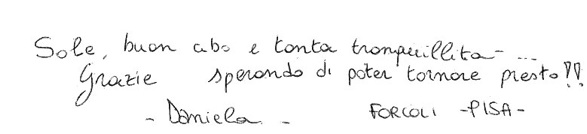 Sole, buon cibo e tanta tranquillita - ...
Grazie sperando di poter tornare presto!!
- Daniela - FORCOLI - PISA -